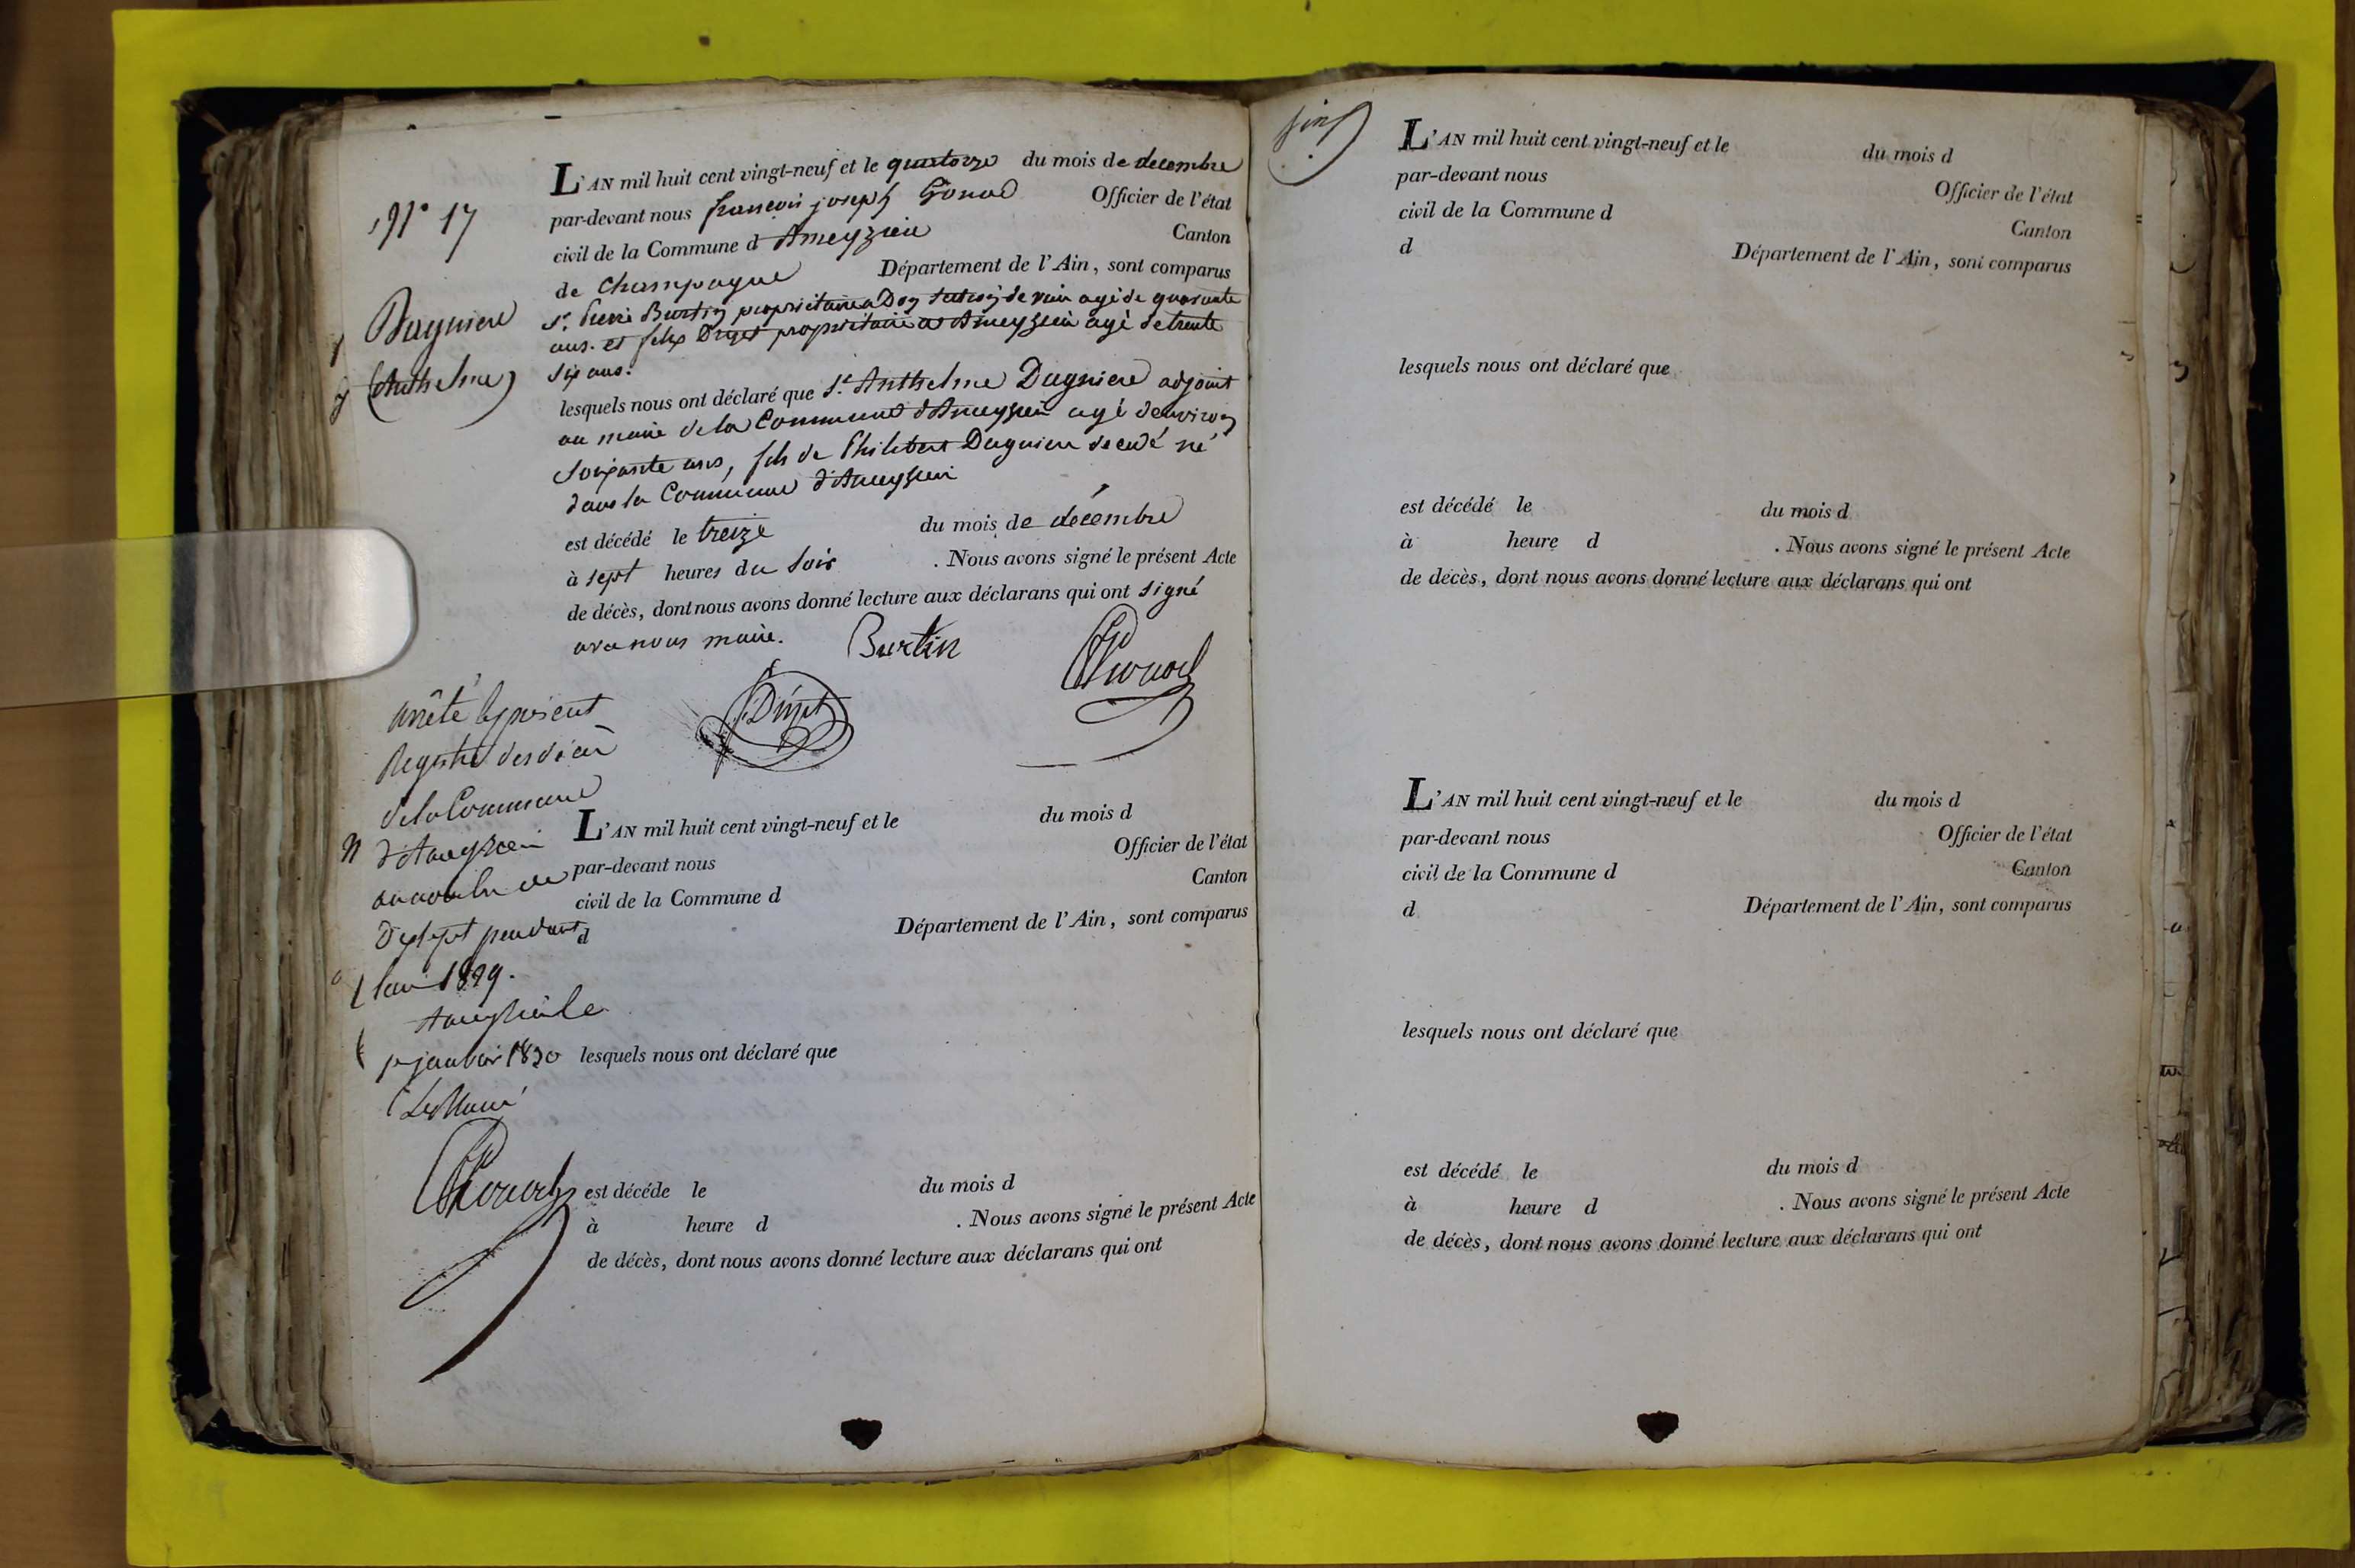 N° 17
Dagniere
(Anthelme)
L'AN mil huit cent vingt-neuf et le quatorze du mois de decembre
par-devant nous francois joseph Gonod Officier de l'état
civil de la Commune d'Ameyzieu Canton
de Champagne Département de l'Ain, sont comparus
Sr. Burtin propriétaire agé de quarante
ans. et felix Druet propriétaire a Ameyzieu agé de trente
six ans.
lesquels nous ont déclaré que Sr. Anthelme Dagniere adjoint
au maire de la Commune d'Ameyzieu agé d'environ
Soixante ans, fils de Philibert Dagniere decedé né
dans la Commune d'Ameyzieu
est décédé le treize du mois de décembre
à sept heures du soir . Nous avons signé le présent Acte
de décès, dont nous avons donné lecture aux déclarans qui ont signé
avec nous maire. Burtin
Gonod
arrêté le présent
Registre des décès
de la Commune
d'Ameyzieu
au nombre de
dix sept pendant
l'an 1829.
Ameyzieu le
janvier 1830
Le Maire
Gonod
L'AN mil huit cent vingt-neuf et le du mois d
par-devant nous Officier de l'état
civil de la Commune d Canton
d Département de l'Ain, sont comparus
lesquels nous ont déclaré que
est décéde le du mois d
à heure d . Nous avons signé le présent Acte
de décès, dont nous avons donné lecture aux déclarans qui ont
fin
L'AN mil huit cent vingt-neuf et le du mois d
par-devant nous Officier de l'état
civil de la Commune d Canton
d Département de l'Ain, sont comparus
lesquels nous ont déclaré que
est décédé le du mois d
à heure d . Nous avons signé le présent Acte
de décès, dont nous avons donné lecture aux déclarans qui ont
L'AN mil huit cent vingt-neuf et le du mois d
par-devant nous Officier de l'état
civil de la Commune d Canton
d Département de l'Ain, sont comparus
lesquels nous ont déclaré que
est décédé le du mois d
à heure d . Nous avons signé le présent Acte
de décès, dont nous avons donné lecture aux déclarans qui ont